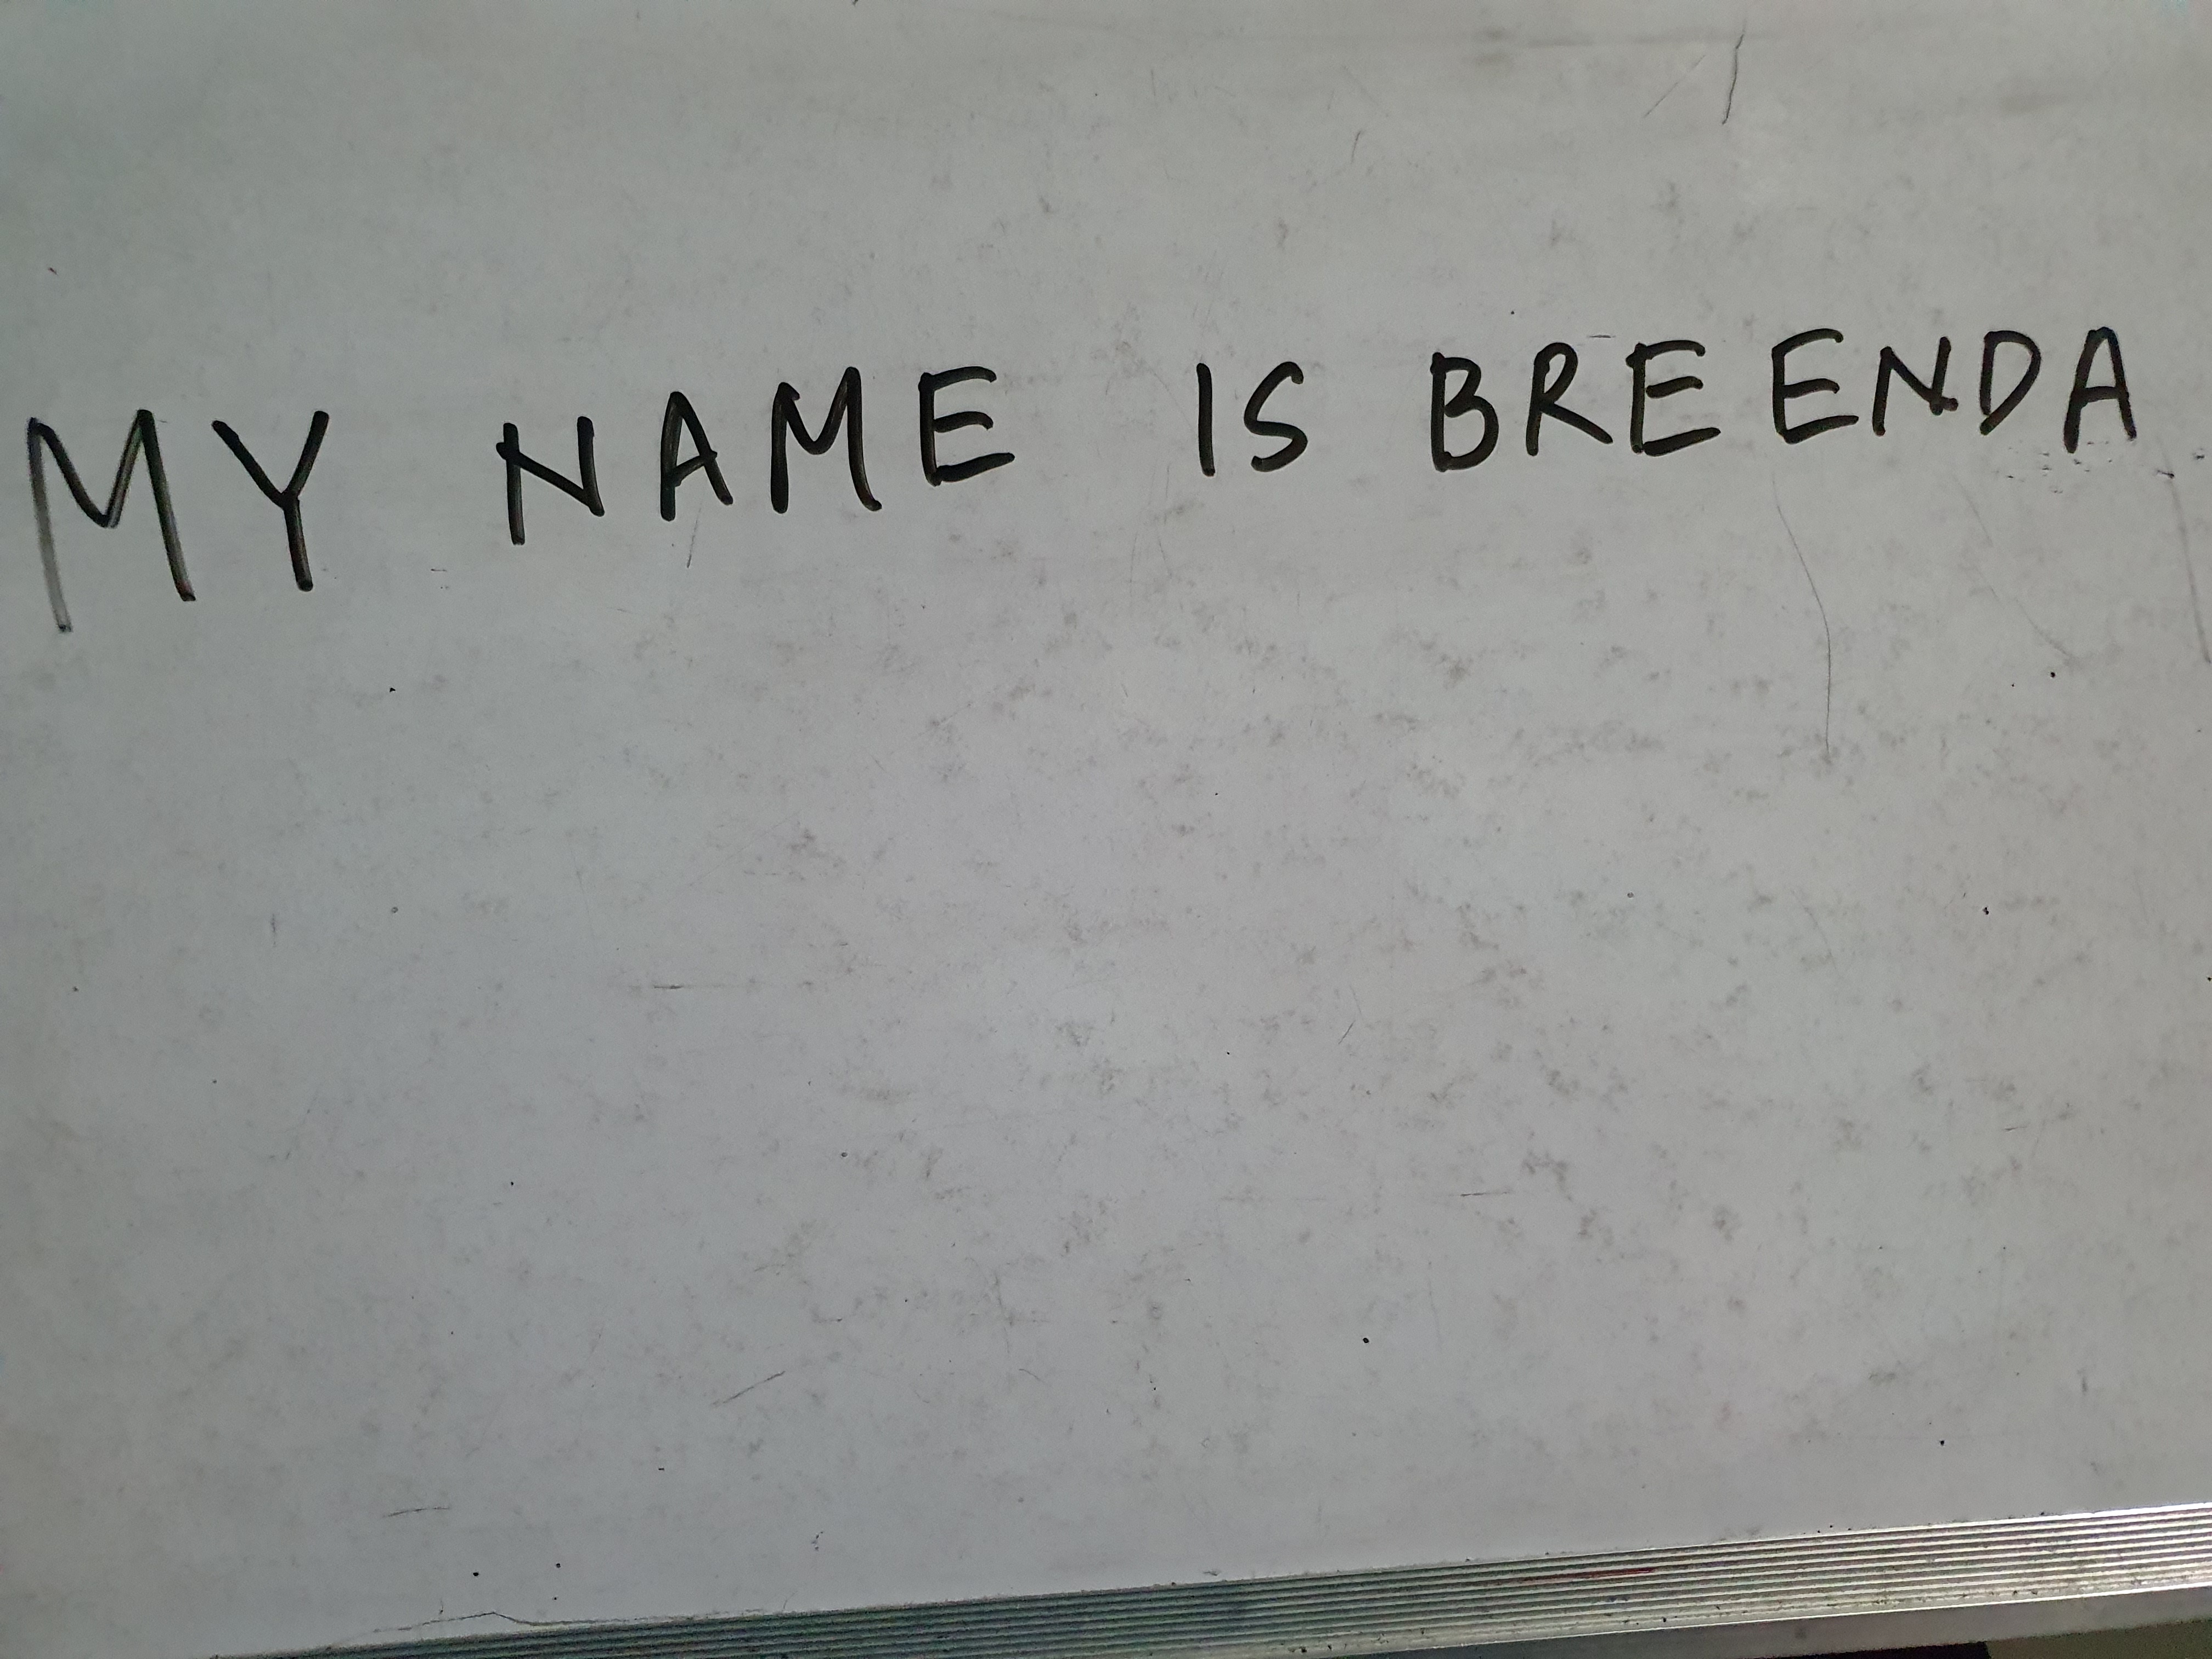 MY NAME IS BREENDA